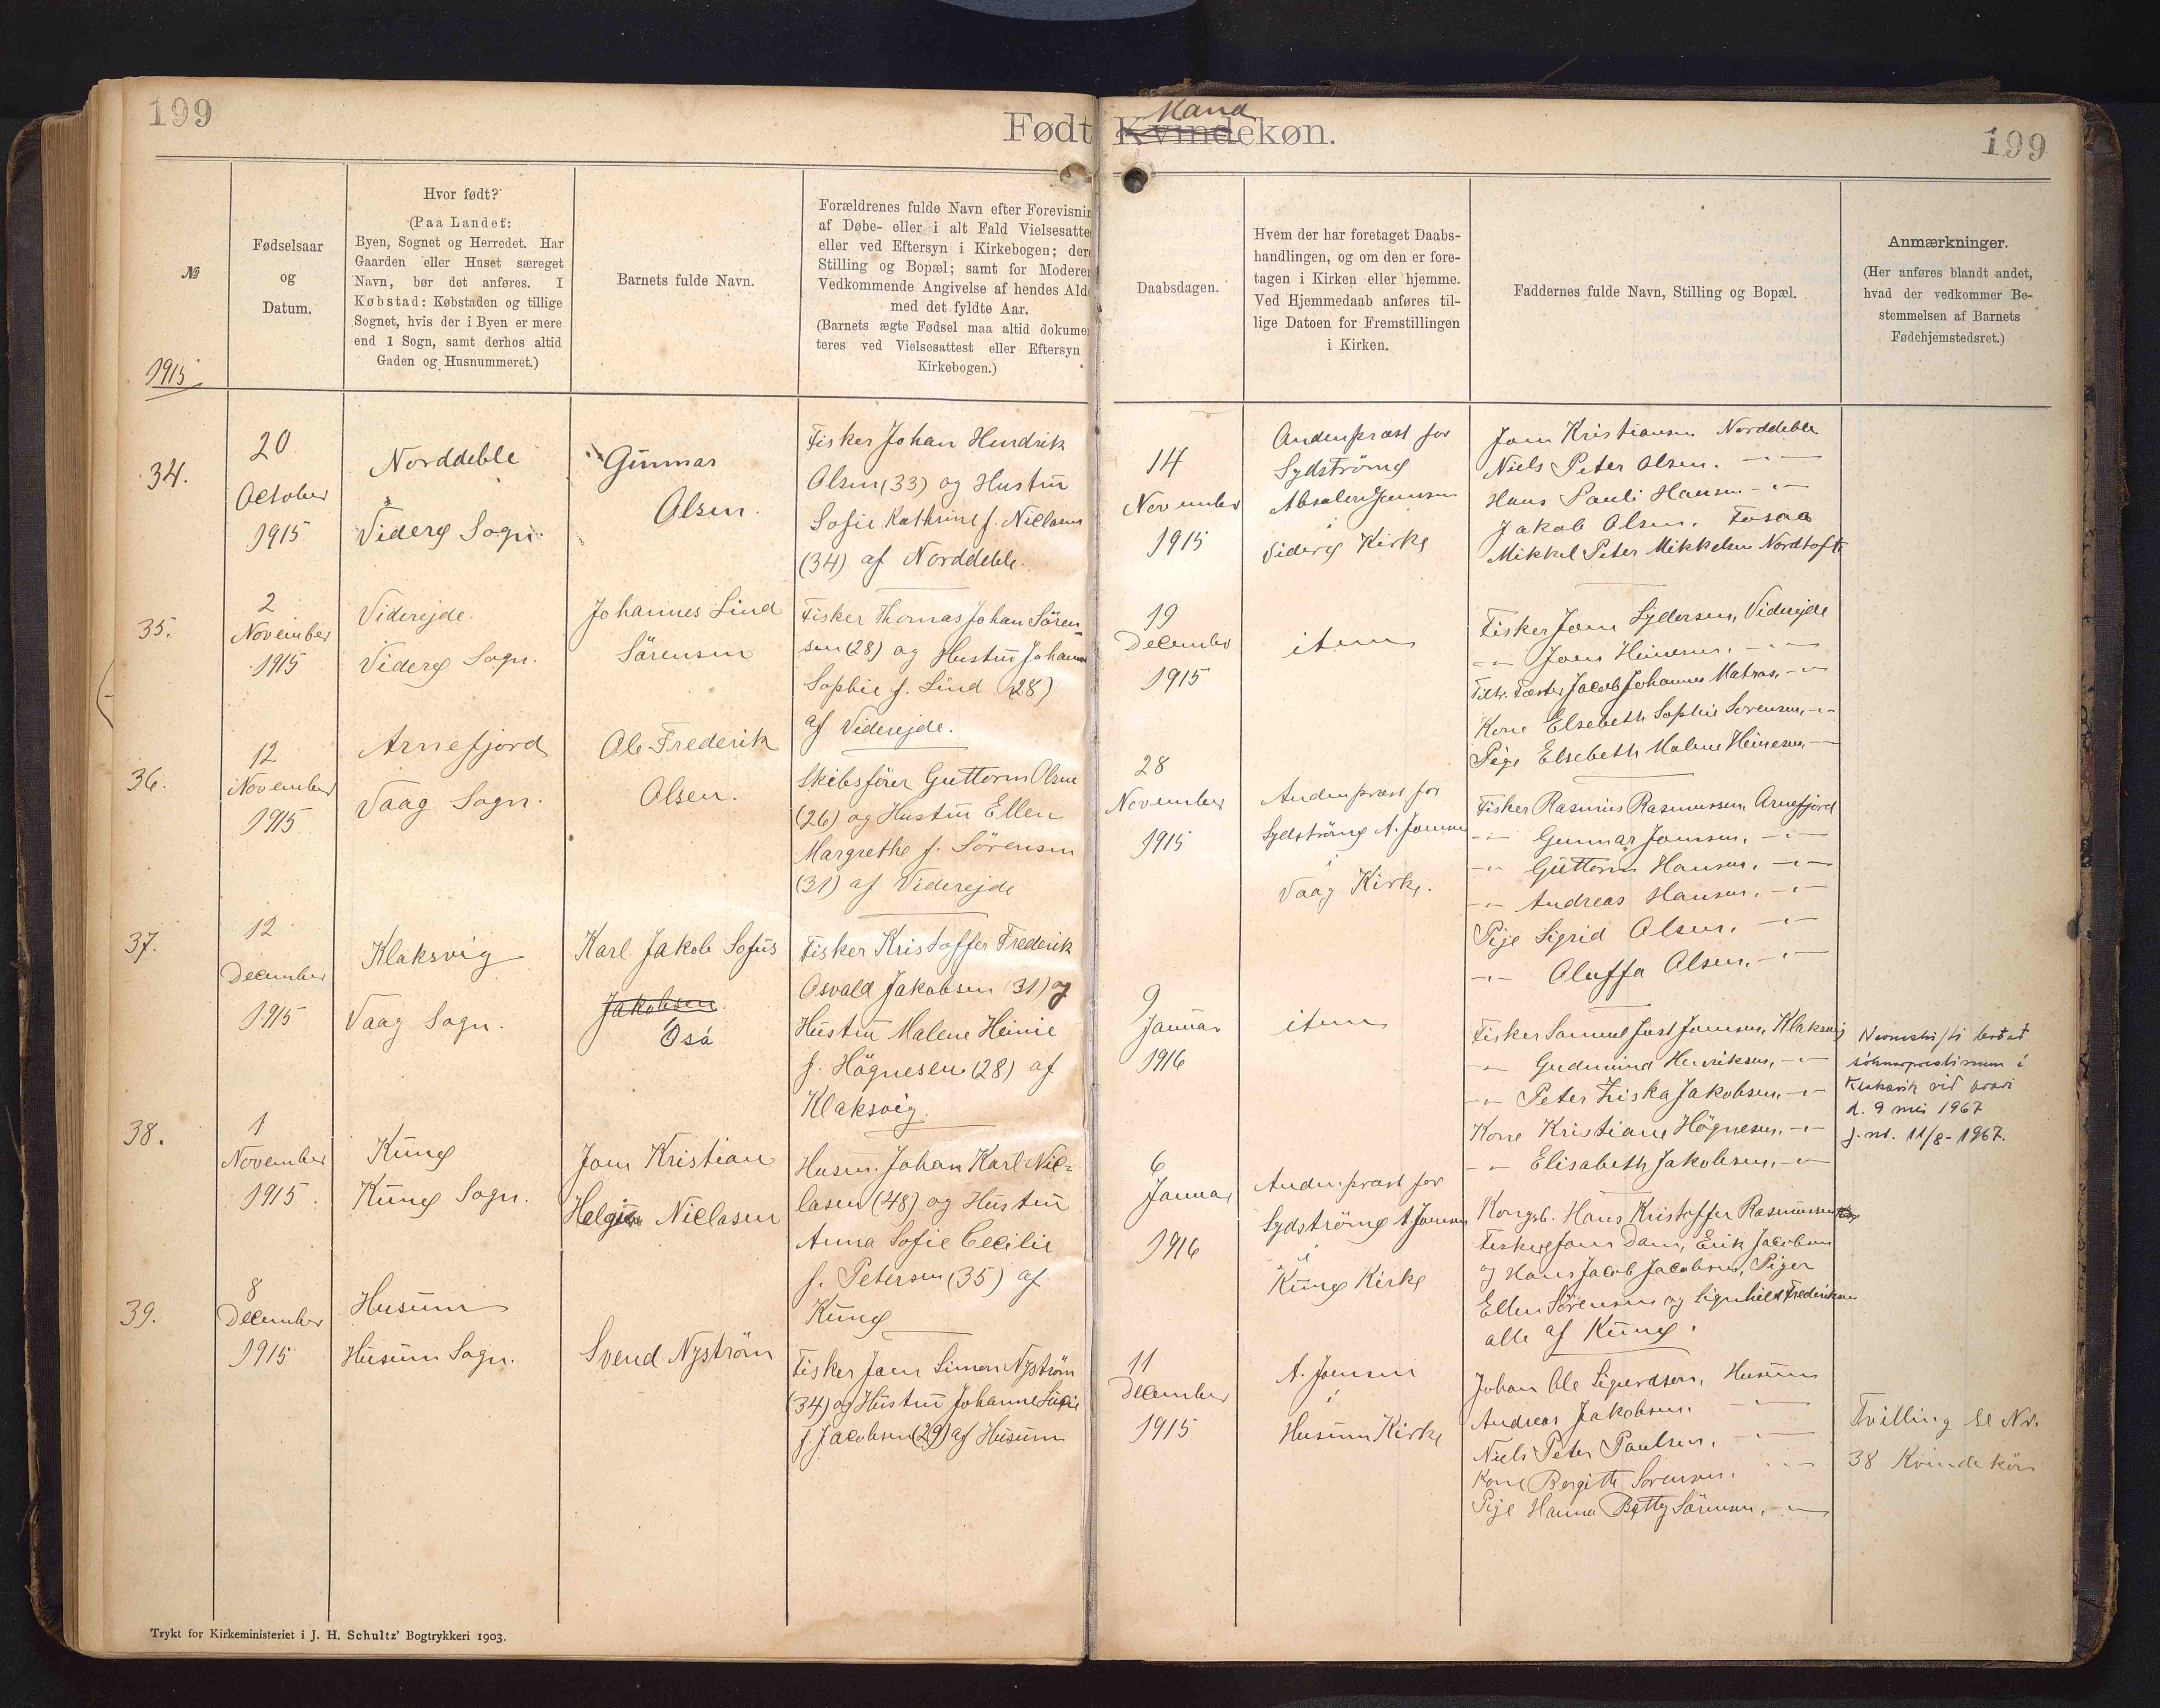 199
Født
Mand
Kvindekøn.
199
№
1915
Fødselsaar
og
Datum.
Hvor født?
(Paa Landet:
Byen, Sognet og Herredet. Har
Gaarden eller Huset særeget
Navn, bør det anføres. I
Købstad: Købstaden og tillige
Sognet, hvis der i Byen er mere
end 1 Sogn, samt derhos altid
Gaden og Husnummeret.)
Barnets fulde Navn.
Forældrenes fulde Navn efter Forevisnin
af Døbe- eller i alt Fald Vielsesatte
eller ved Eftersyn i Kirkebogen; der
Stilling og Bopæl; samt for Modere
Vedkommende Angivelse af hendes Ald
med det fyldte Aar.
(Barnets ægte Fødsel maa altid dokume
teres ved Vielsesattest eller Eftersyn
Kirkebogen.)
Daabsdagen.
Hvem der har foretaget Daabs-
handlingen, og om den er fore-
tagen i Kirken eller hjemme.
Ved Hjemmedaab anføres til-
lige Datoen for Fremstillingen
i Kirken.
Faddernes fulde Navn, Stilling og Bopæl.
Anmærkninger.
(Her anføres blandt andet,
hvad der vedkommer Be-
stemmelsen af Barnets
Fødehjemstedsret.)
34.
20
October
1915
Norddeble
Viderø Sogn.
Gunnar
Olsen.
Fisker Johan Hendrik
Olsen (33) og Hustru
Sofie Kathrine f. Niclasen
(34) af Norddeble.
14
November
1915
Andenpræst for
Sydstrømø
Absalon Joensen
i
Viderø Kirke
Joen Kristiansen Norddeble
Niels Peter Olsen. -"-
Hans Pauli Hansen -"-
Jakob Olsen. Fosaa
Mikkel Peter Mikkelsen Nordtofte
35.
2
November
1915
Viderejde.
Viderø Sogn.
Johannes Lind
Sørensen
Fisker Thomas Johan Søren-
sen (28) og Hustru Johanne
Sophie f. Lind (28)
af Viderejde.
19
December
1915
item
Fisker Joen Lydersen, Viderejde
-"- Joen Heinesen. -"-
Jacob Johannes Matras, -"-
Kone Elsebeth Sophie Sørensen, -"-
Pige Elsebeth Malene Heinesen, -"-
36.
12
November
1915
Arnefjord
Vaag Sogn.
Ole Frederik
Olsen.
Skibsfører Guttorm Olsen
(26) og Hustru Ellen
Margrethe f. Sørensen
(31) af Viderejde
28
November
1915
Andenpræst for
Sydstrømø A. Joensen
i
Vaag Kirke.
Fisker Rasmus Rasmussen, Arnefjord
-"- Gunnar Joensen, -"-
-"- Guttorm Hansen, -"-
-"- Andreas Hansen, -"-
Pige Sigrid Olsen, -"-
-"- Oluffa Olsen, -"-
37.
12
December
1915
Klaksvig
Vaag Sogn.
Karl Jakob Sofus
Jakobsen
Osá
Fisker Kristoffer Frederik
Osvald Jakobsen (31) og
Hustru Malene Heinie
f. Høgnesen (28) af
Klaksvig.
9
Januar
1916
item
Fisker Samuel Just Joensen, Klaksvig
-"- Gudmund Henriksen, -"-
-"- Peter Ziska Jakobsen, -"-
Kone Kristiane Høgnesen, -"-
-"- Elisabeth Jakobsen, -"-
i
Klaksvík við
d. 9 mei 1967
j. nr. 11/8-1967.
38.
1
November
1915
Kunø
Kunø Sogn.
Joen Kristian
Helgi Niclasen
Husm. Johan Karl Nic-
lasen (48) og Hustru
Anna Sofie Cecilie
f. Petersen (35) af
Kunø
6
Januar
1916
Andenpræst for
Sydstrømø A Joensen
i
Kunø Kirke
Kongsb. Hans Kristoffer Rasmussen
Fiskere Joen Dam, Erik Jacobsen
og Hans Jacob Jacobsen, Piger
Ellen Sørensen og Signhild Frederiksen
alle af Kunø.
39.
8
December
1915
Husum
Husum Sogn.
Svend Nystrøm
Fisker Joen Simon Nystrøm
(34) og Hustru Johanne Lucie
f. Jacobsen (29) af Husum
11
December
1915
A. Joensen
i
Husum Kirke
Johan Ole Sigurdsen, Husum
Andreas Jakobsen. -"-
Niels Peter Poulsen, -"-
Kone Bergitte Sørensen. -"-
Pige Hanna Betty Sørensen, -"-
Tvilling se Nr.
38 Kvindekøn
Trykt for Kirkeministeriet i J. H. Schultz' Bogtrykkeri 1903.